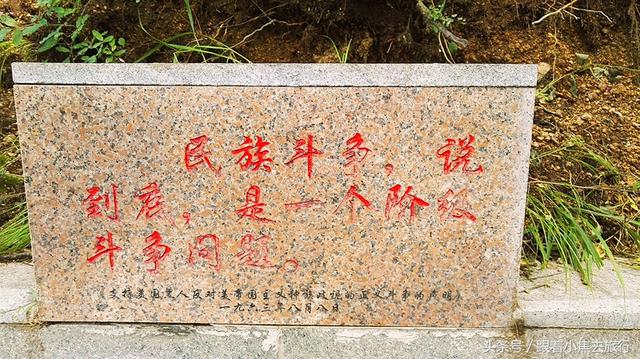 民族斗争，说
到底，是一个阶级
斗争问题。
《支持美国黑人反对美帝国主义种族歧视的正义斗争的声明》
一九六三年八月八日
头条号 / 眼看小焦去旅行